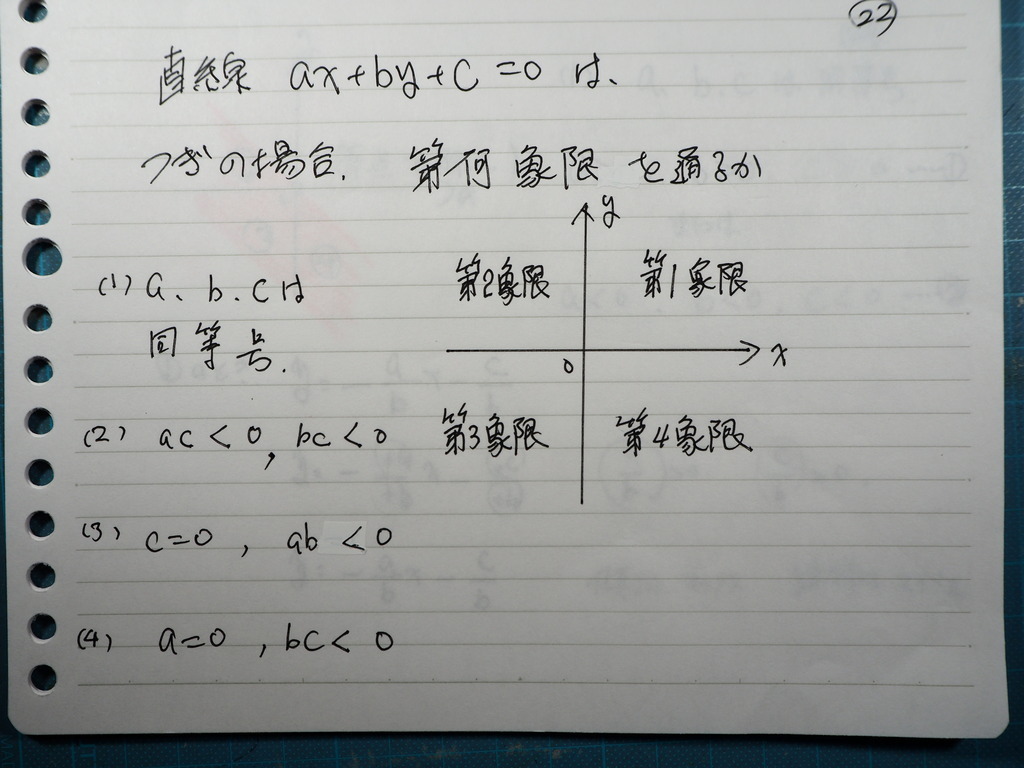 22
直線 ax+by+c=0 は、
つぎの場合、第何象限を通るか
y
第2象限 第1象限
(1) a、b、cは
同等号.
0
x
(2) ac<0, bc<0
第3象限 第4象限
(3) c=0, ab<0
(4) a=0, bc<0